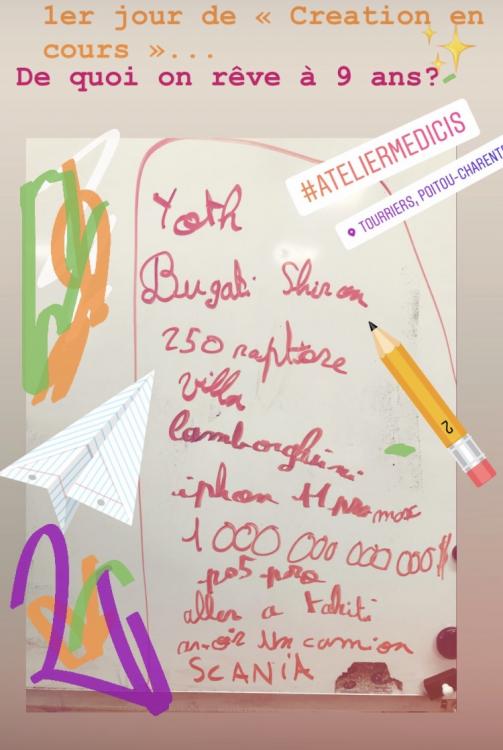 1er jour de « Creation en
cours »...
De quoi on rêve à 9 ans?
#ATELIERMEDICIS
TOURRIERS, POITOU-CHARENT
Yoth
Bugati Shiron
250 raptore
villa
lamborghini
iphon 11 pro max
1 000 000 000 000 $
ps5 pro
aller a tahiti
avoir un camion
SCANIA
2